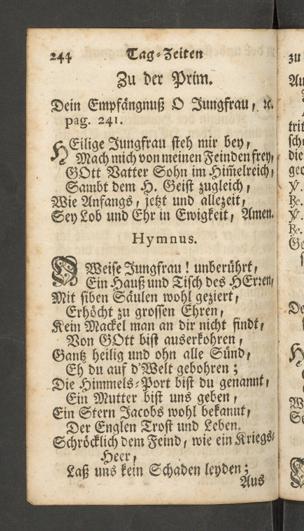 244 Tag-Zeiten
Zu der Prim.
Dein Empfängnuß O Jungfrau, ꝛc.
pag. 241.
HEilige Jungfrau steh mir bey,
Mach mich von meinen Feinden frey,
GOtt Vatter Sohn im Him̃elreich,
Sambt dem H. Geist zugleich,
Wie Anfangs, jetzt und allezeit,
Sey Lob und Ehr in Ewigkeit, Amen.
Hymnus.
O Weise Jungfrau! unberührt,
Ein Hauß und Tisch des HErren,
Mit siben Säulen wohl geziert,
Erhöcht zu grossen Ehren,
Kein Mackel man an dir nicht findt,
Von GOtt bist auserkohren,
Gantz heilig und ohn alle Sünd,
Eh du auf d'Welt gebohren;
Die Himmels-Port bist du genannt,
Ein Mutter bist uns geben,
Ein Stern Jacobs wohl bekannt,
Der Englen Trost und Leben.
Schröcklich dem Feind, wie ein Kriegs-
Heer,
Laß uns kein Schaden leyden;
Aus
zu